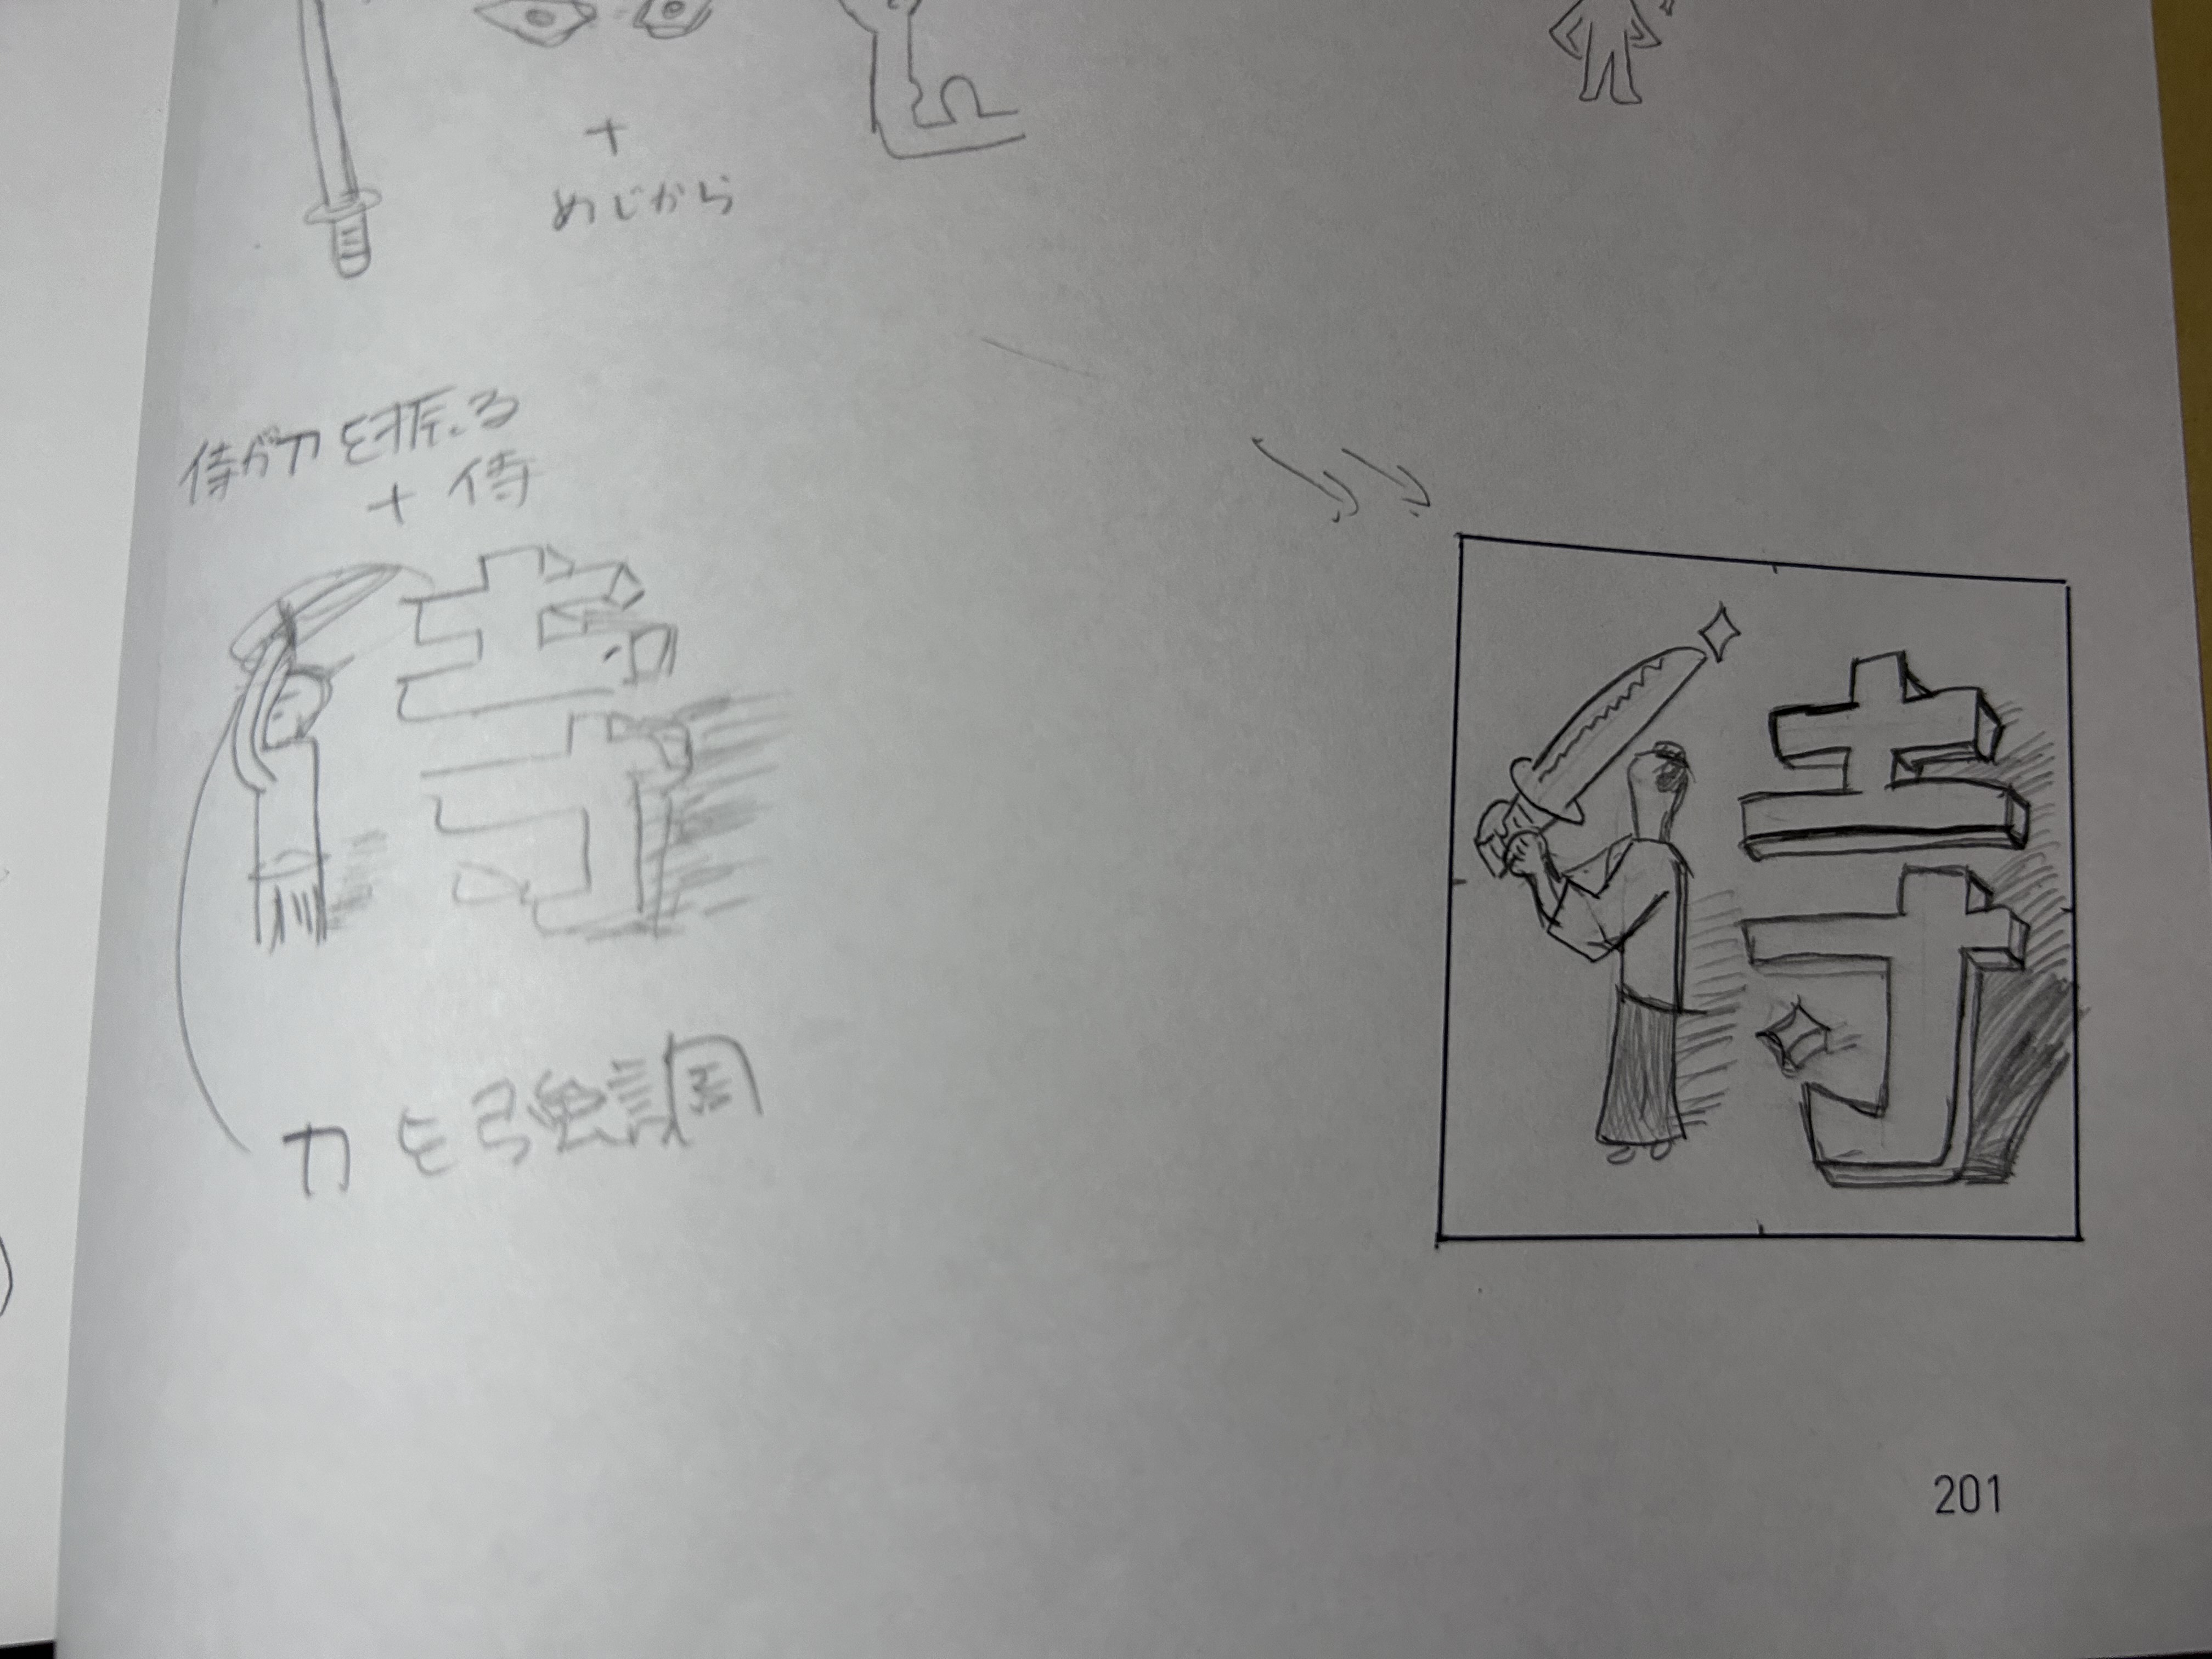 +
めじから
侍が刀を振る
+ 侍
寺
刀を強調
寺
201